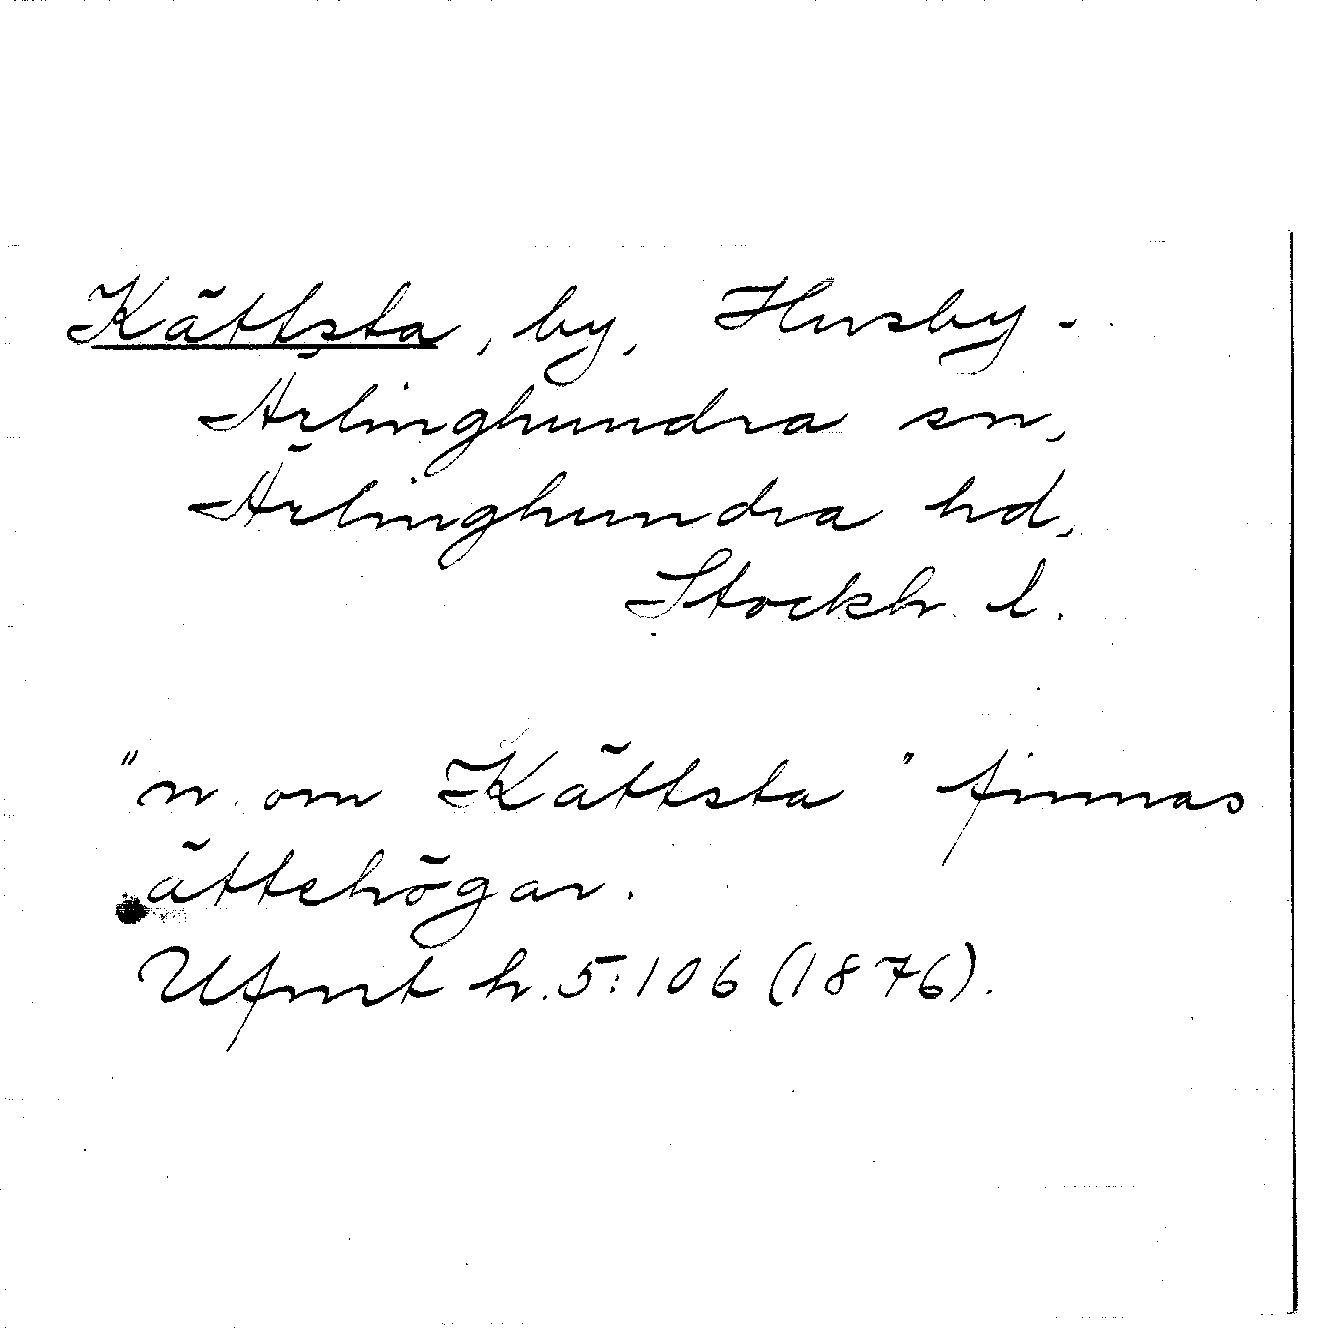 Kättsta, by, Husby-
Ärlinghundra sn,
Ärlinghundra hd,
Stockh. l.
"n. om Kättsta" finnas
ättehögar.
Ufmt h. 5:106 (1876).